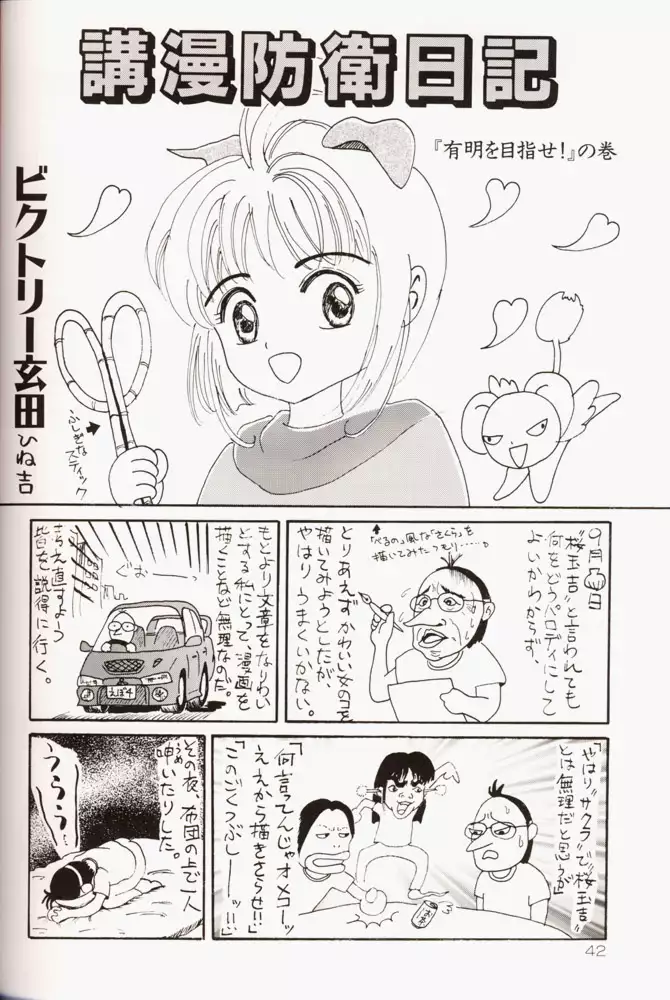 講漫防衛日記
『有明を目指せ!』の巻
ビクトリー玄田
ひね吉
ふしぎな
スティック
9月
日
"桜玉吉"と言われても
何をどうパロディにして
よいかわからず、
「ぺるの」風な「さくら」を
描いてみたつもり……
とりあえずかわいい女のコを
描いてみようとしたが、
やはりうまくいかない。
もとより文章をなりわい
とする私にとって、漫画を
描くことなど無理なのだ。
ぐおー
考え直すよう
皆を説得に行く。
えぼ4
「やはり"サクラ"で"桜玉吉"
とは無理だと思うが」
「何言ってんじゃオメコーッ
ええから描きさらせ!!」
「このごくつぶしーーッ!!」
その夜、布団の上で一人
呻いたりした。
うめ
うらう…
42